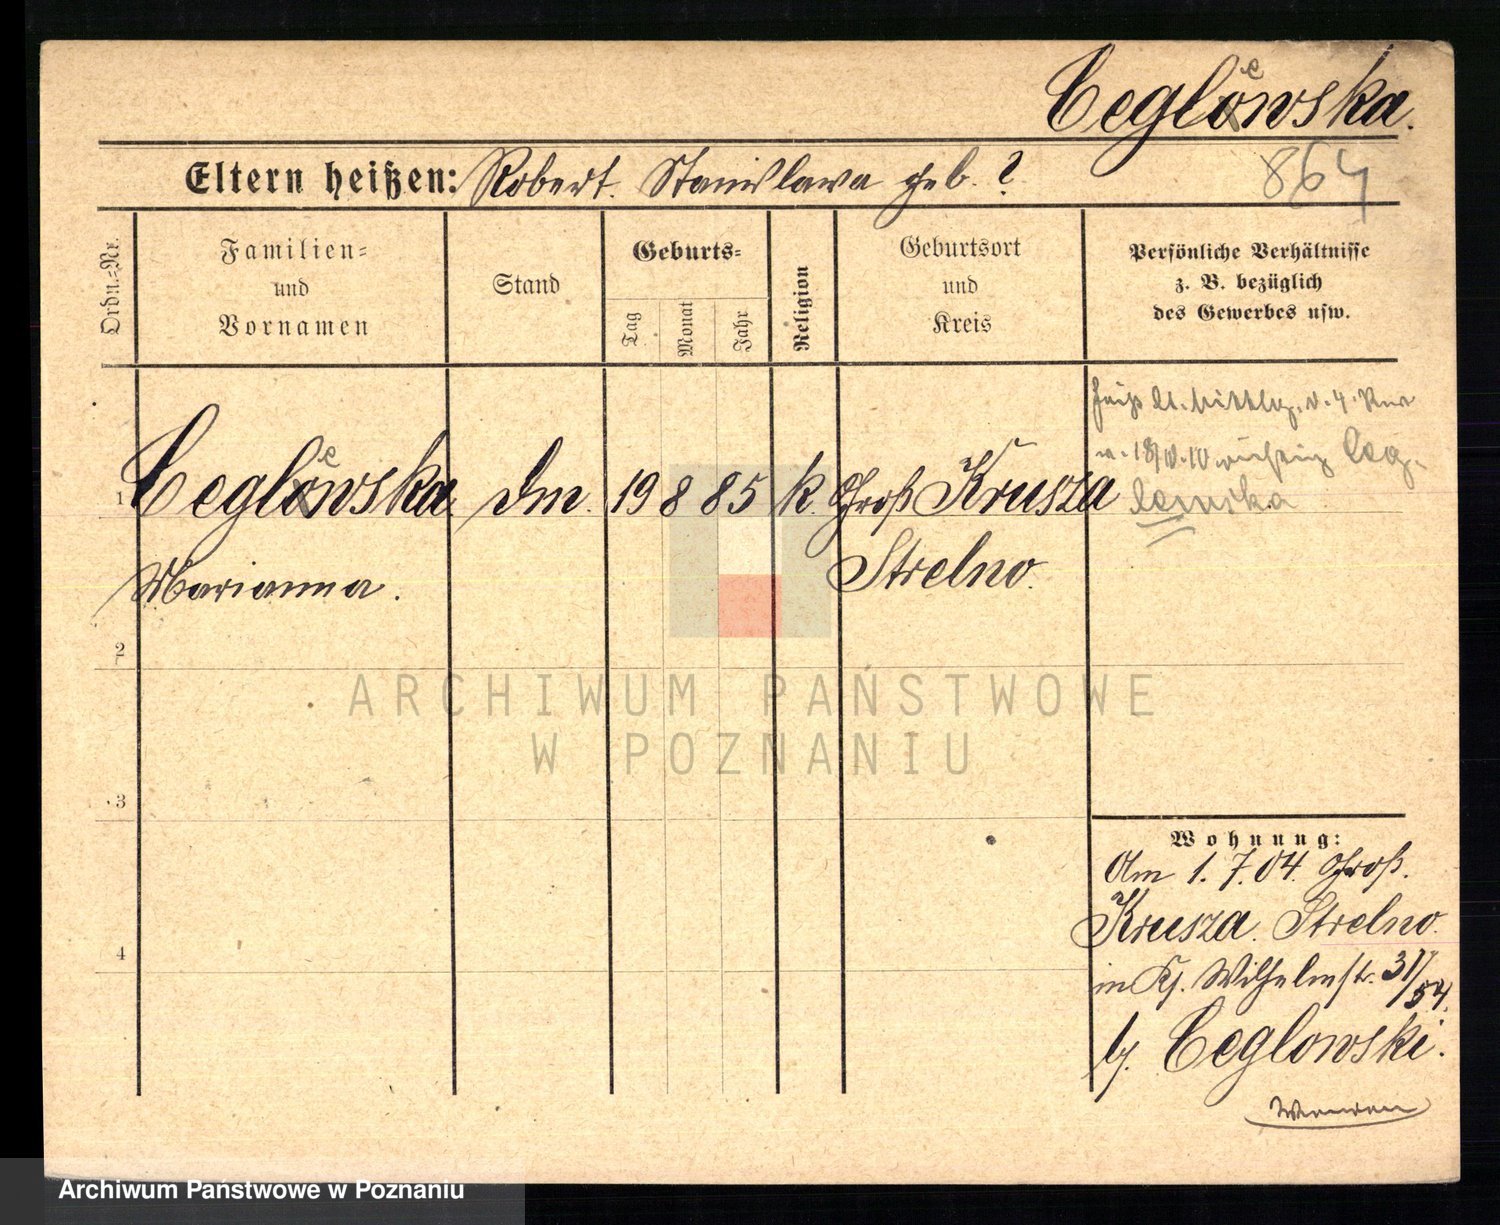 Ceglowska.
e
864
Eltern heißen: Robert. Stanislawa geb. ?
Ordn.=Nr.
Familien=
und
Vornamen
Stand
Geburts=
Tag
Monat
Jahr
Religion
Geburtsort
und
Kreis
Persönliche Verhältnisse
z. B. bezüglich
des Gewerbes usw.
heißt lt.
richtig Ceg-
lewska
1 Ceglowska Dm. 19 8 85 k. Groß Krusza
e
Strelno.
Marianna.
2
3
4
Wohnung:
Am 1. 7. 04. Groß.
Krusza. Strelno.
in Kj. Wilhelmstr. 31/
54.
bj. Ceglowski.
ARCHIWUM PAŃSTWOWE
W POZNANIU
Archiwum Państwowe w Poznaniu